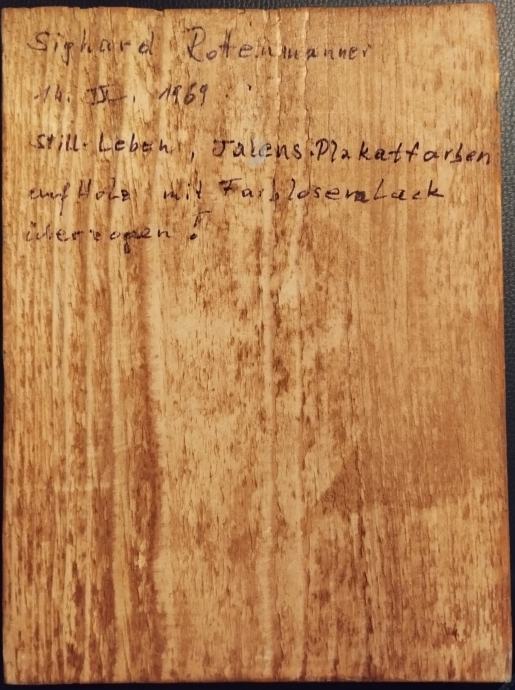 Sighard Rottenmanner
14. II. 1969
Still-Leben, Talens-Plakatfarben
auf Holz mit Farblosem Lack
überzogen!